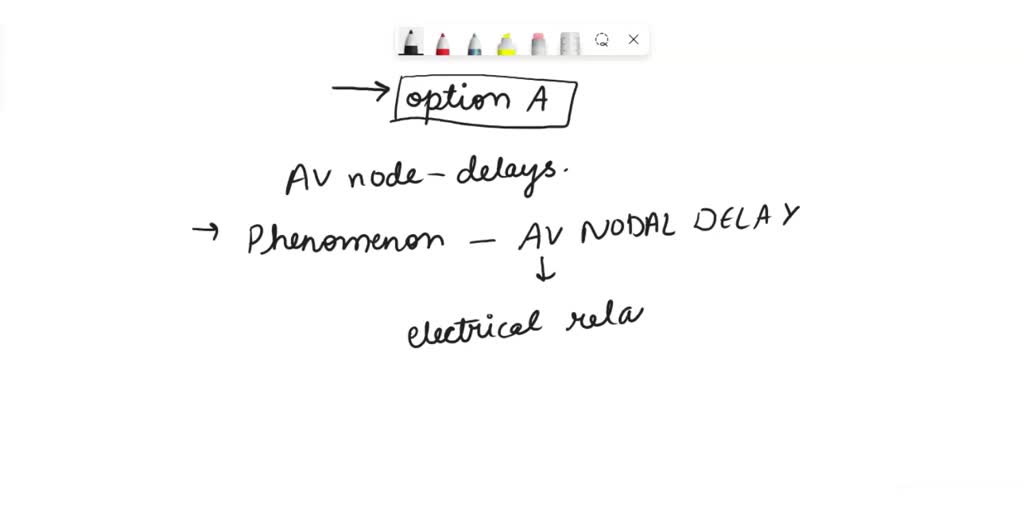 → option A
AV node - delays.
→ Phenomenon - AV NODAL DELAY
↓
electrical rela